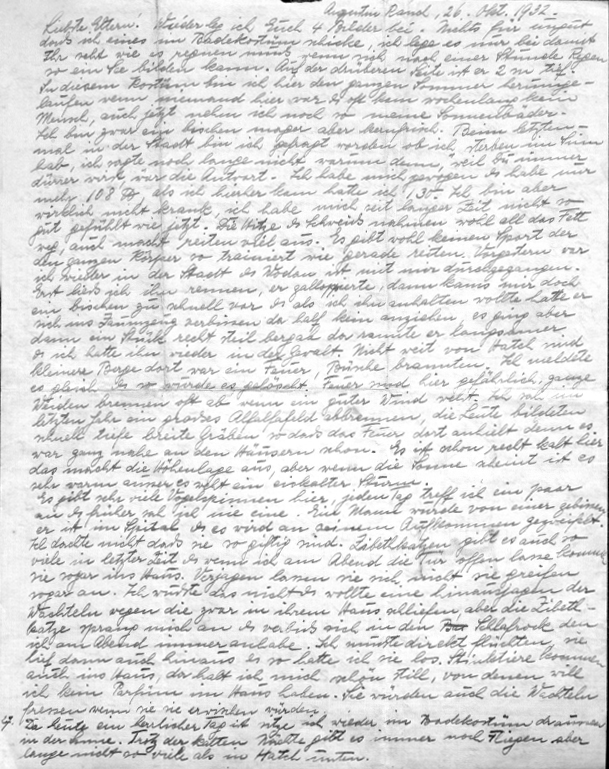 Augustin Ranch, 26. Okt. 1932.
Liebste Eltern. Wieder leg ich Euch 4 Bilder bei. Nichts für ungut
dass ich eines im Badekostüm schicke, ich lege es nur bei damit
Ihr seht wie es regnen muss wenn sich nach einer Stunde Regen
so ein See bilden kann. Auf der drüberen Seite ist er 2 m tief.
In diesem Kostüm bin ich hier den ganzen Sommer herumge-
laufen wenn niemand hier war & oft kein wochenlang kein
Mensch, auch jetzt nehm ich noch so meine Sonnenbäder.
Ich bin zwar ein bischen mager aber kerngfrisch. Beim letzten-
mal in der Stadt bin ich gefragt worden ob ich sterben im Sinn
hab, ich sagte noch lange nicht warum denn, weil du immer
dürrer wirst war die Antwort. Ich habe mich gewogen & habe nur
mehr 108 als ich hierher kam hatte ich 137. Ich bin aber
wirklich nicht krank, ich habe mich seit langer Zeit nicht so
gut gefühlt wie jetzt. Die Hitze & Schweiss nahmen wohl all das Fett
weg auch macht reiten viel aus. Es gibt wohl keinen Sport der
den ganzen Körper so trainiert wie gerade reiten. Vorgestern war
ich wieder in der Stadt & Wodan ist mit mir durchgegangen.
Erst liess ich ihn rennen, er galloppierte, dann kams mir doch
ein bischen zu schnell vor & als ich ihn anhalten wollte hatte er
sich ins Zaumzeug verbissen da half kein anziehen, es ging aber
dann ein Stück recht steil bergab da rannte er langsamer
& ich hatte ihn wieder in der Gewalt. Nicht weit von Hatch sind
kleinere Berge dort war ein Feuer, Büsche brannten. Ich meldete
es gleich & so wurde es gelöscht. Feuer sind hier gefährlich, ganze
Weiden brennen oft ab wenn ein guter Wind weht. Ich sah im
letzten Jahr ein grosses Alfalfafeld abbrennen, die Leute bildeten
schnell tiefe breite Gräben so dass das Feuer dort anhielt denn es
war ganz nahe an den Häusern schon. Es ist schon recht kalt hier
das macht die Höhenlage aus, aber wenn die Sonne scheint ist es
sehr warm ausser es weht ein eiskalter Sturm.
Es gibt sehr viele Vogelspinnen hier, jeden Tag treff ich ein paar
an & früher sah ich nie eine. Ein Mann wurde von einer gebissen
er ist im Spital & es wird an seinem Aufkommen gezweifelt.
Ich dachte nicht dass sie so giftig sind. Zibethkatzen gibt es auch so
viele in letzter Zeit & wenn ich am Abend die Tür offen lasse kommen
sie sogar ins Haus. Verjagen lassen sie sich nicht sie greifen
sogar an. Ich wusste das nicht & wollte eine hinausjagen der
Wachteln wegen die zwar in ihrem Haus schliefen, aber die Zibeth-
katze sprang mich an & verbiss sich in den Schlafrock den
ich am Abend immer anhabe. Ich musste direkt flüchten, sie
lief dann auch hinaus & so hatte ich sie los. Stinktiere kommen
auch ins Haus, da halt ich mich schön still, von denen will
ich kein Parfüm im Haus haben. Sie würden auch die Wachteln
fressen wenn sie sie erwischen würden.
27. Da heute ein herrlicher Tag ist sitze ich wieder im Badekostüm draussen
in der Sonne. Trotz der kalten Nächte gibt es immer noch Fliegen aber
lange nicht so viele als in Hatch unten.